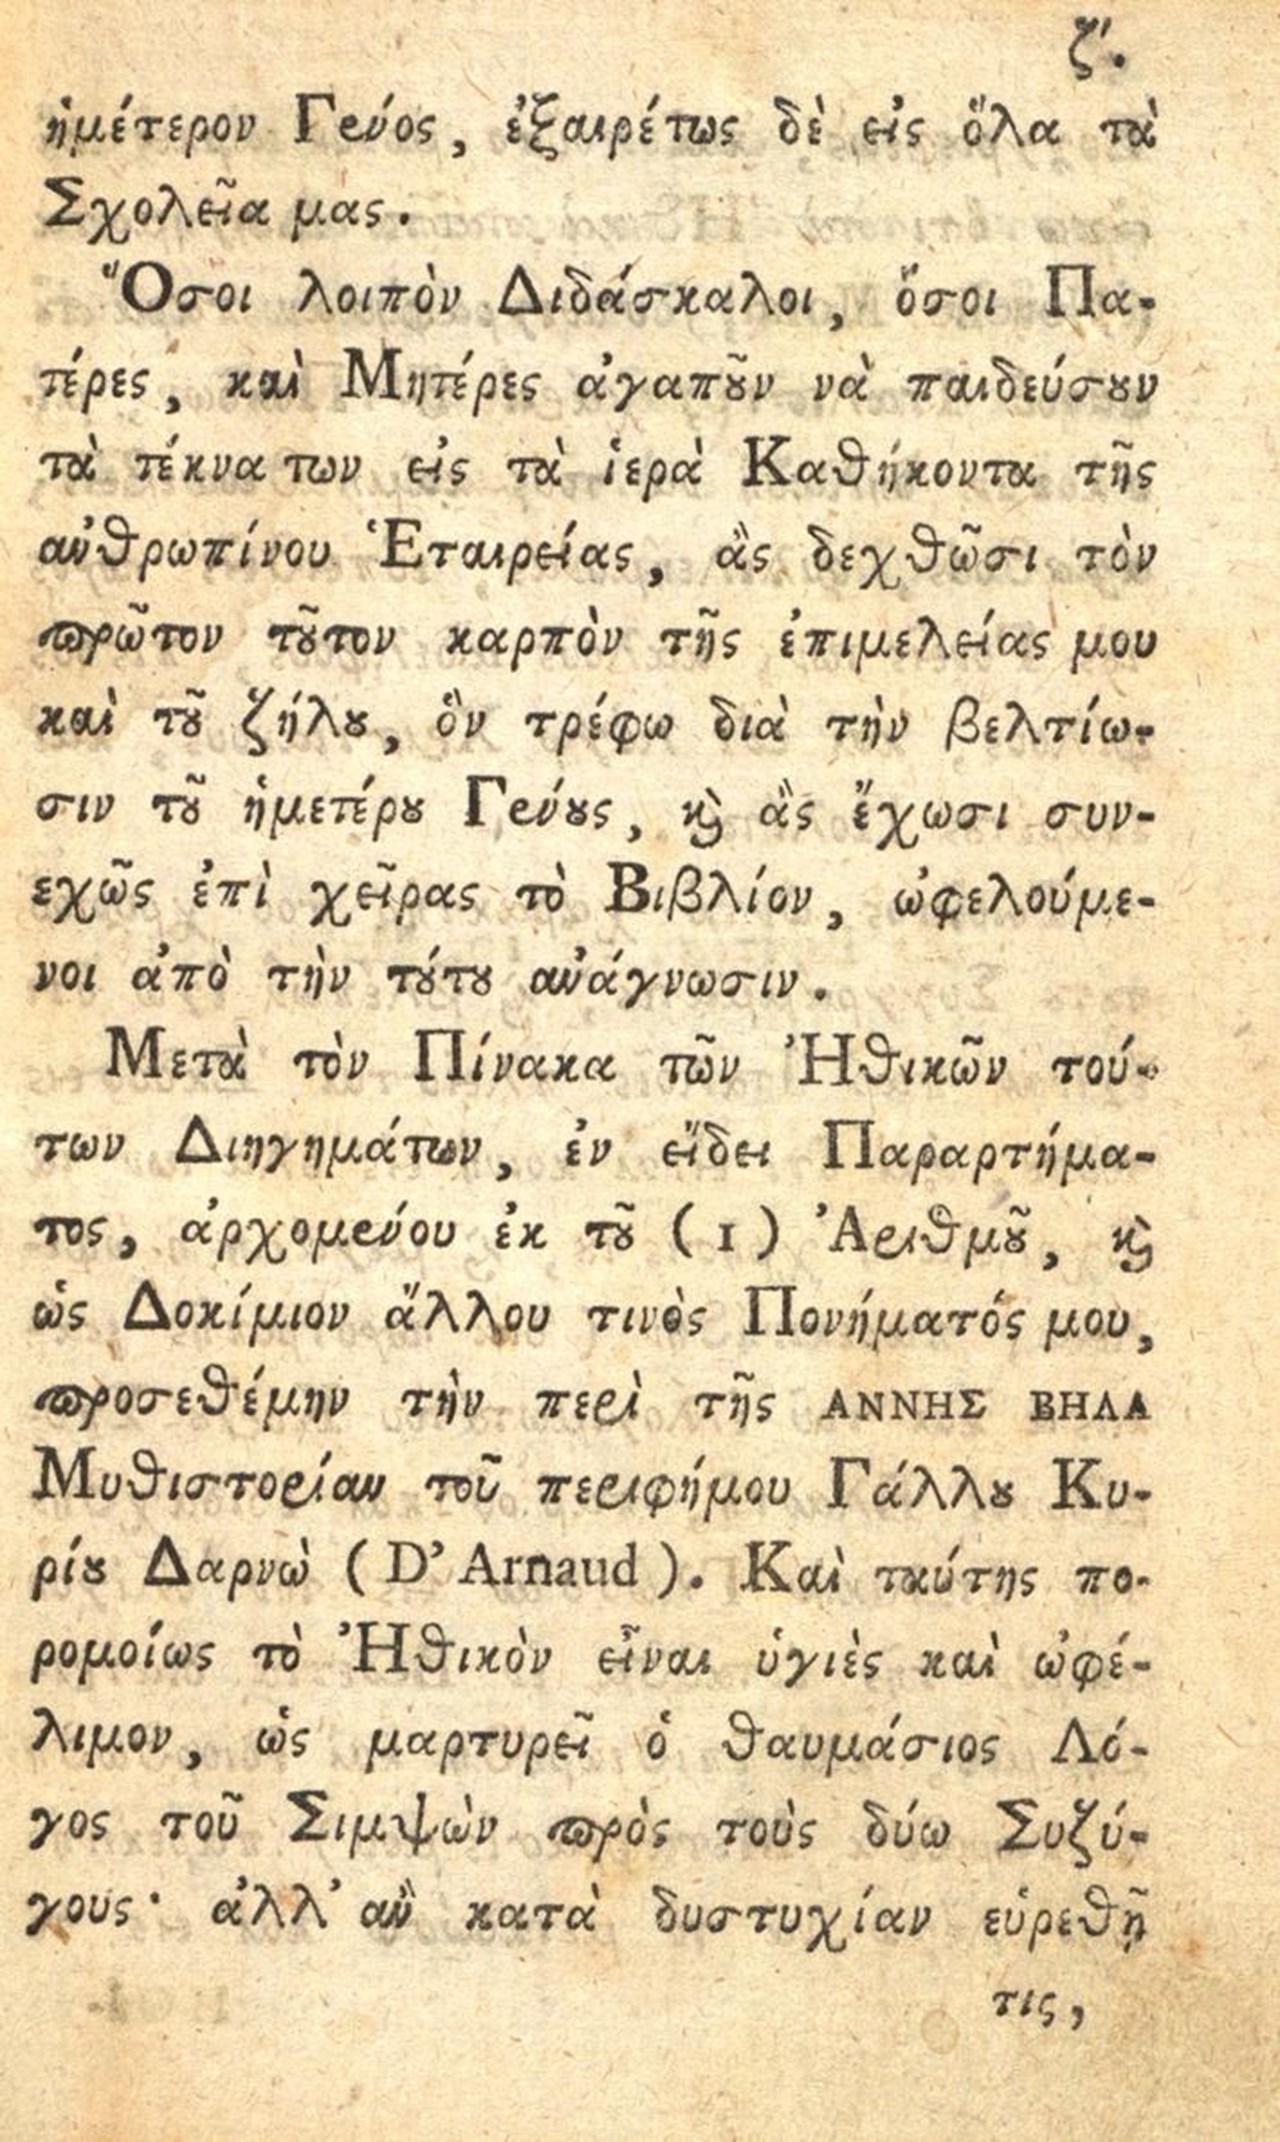 ζ'.
ἡμέτερον Γένος, ἐξαιρέτως δὲ εἰς ὅλα τὰ
Σχολεῖα μας.
Ὅσοι λοιπὸν Διδάσκαλοι, ὅσοι Πα-
τέρες, καὶ Μητέρες ἀγαποῦν νὰ παιδεύσουν
τὰ τέκνα των εἰς τὰ ἱερὰ Καθήκοντα τῆς
ἀνθρωπίνου Ἑταιρείας, ἂς δεχθῶσι τὸν
πρῶτον τοῦτον καρπὸν τῆς ἐπιμελείας μου
καὶ τοῦ ζήλου, ὃν τρέφω διὰ τὴν βελτίω-
σιν τοῦ ἡμετέρου Γένους, ϗ ἂς ἔχωσι συν-
εχῶς ἐπὶ χεῖρας τὸ Βιβλίον, ὠφελούμε-
νοι ἀπὸ τὴν τούτου ἀνάγνωσιν.
Μετὰ τὸν Πίνακα τῶν Ἠθικῶν τού-
των Διηγημάτων, ἐν εἴδει Παραρτήμα-
τος, ἀρχομένου ἐκ τοῦ (1) Ἀριθμοῦ, ϗ
ὡς Δοκίμιον ἄλλου τινὸς Πονήματός μου,
προσεθέμην τὴν περὶ τῆς ΑΝΝΗΣ ΒΗΛΑ
Μυθιστορίαν τοῦ περιφήμου Γάλλου Κυ-
ρίου Δαρνὼ (D'Arnaud). Καὶ ταύτης πο-
ρομοίως τὸ Ἠθικὸν εἶναι ὑγιὲς καὶ ὠφέ-
λιμον, ὡς μαρτυρεῖ ὁ θαυμάσιος Λό-
γος τοῦ Σιμψὼν πρὸς τοὺς δύω Συζύ-
γους· ἀλλ' ἂν κατὰ δυστυχίαν εὑρεθῇ
τις,